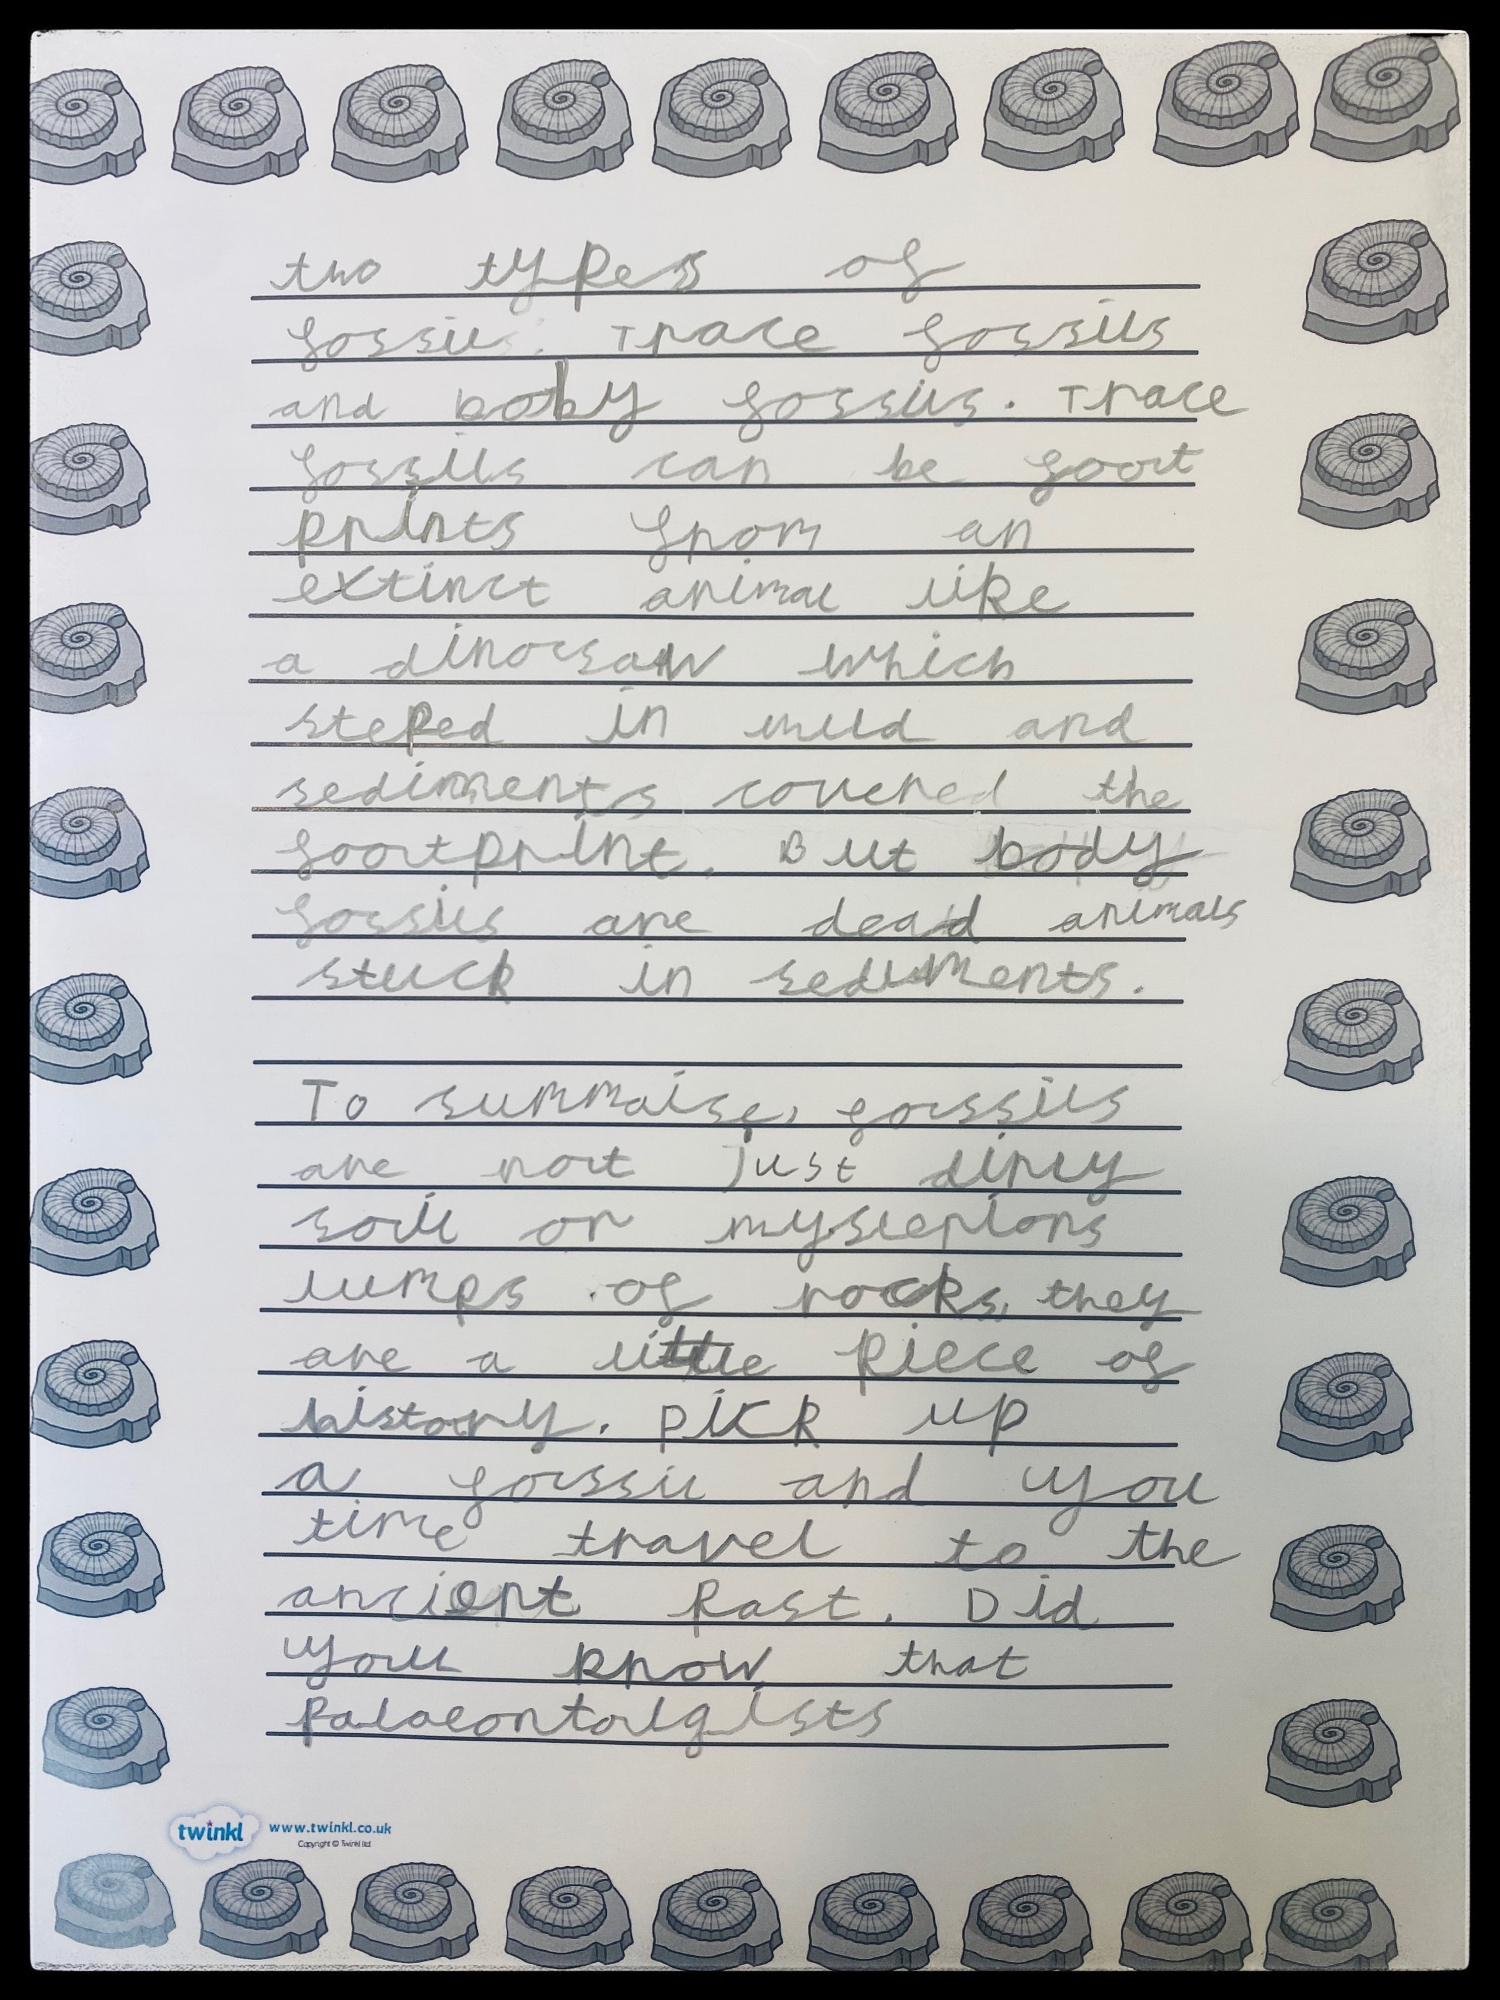 two types of
fossils. Trace fossils
and boby fossils. Trace
fossils can be foot
prints from an
extinct animal like
a dinorsaw which
steped in mud and
sediments covered the
footprint. But body
fossils are dead animals
stuck in sediments.
To summaise, fossils
are not just dirty
soil or mysterions
lumps of rocks, they
are a little piece of
history. pick up
a fossil and you
time travel to the
ancient past. Did
you know that
palaeontolgists
twinkl www.twinkl.co.uk
Copyright © Twinkl Ltd